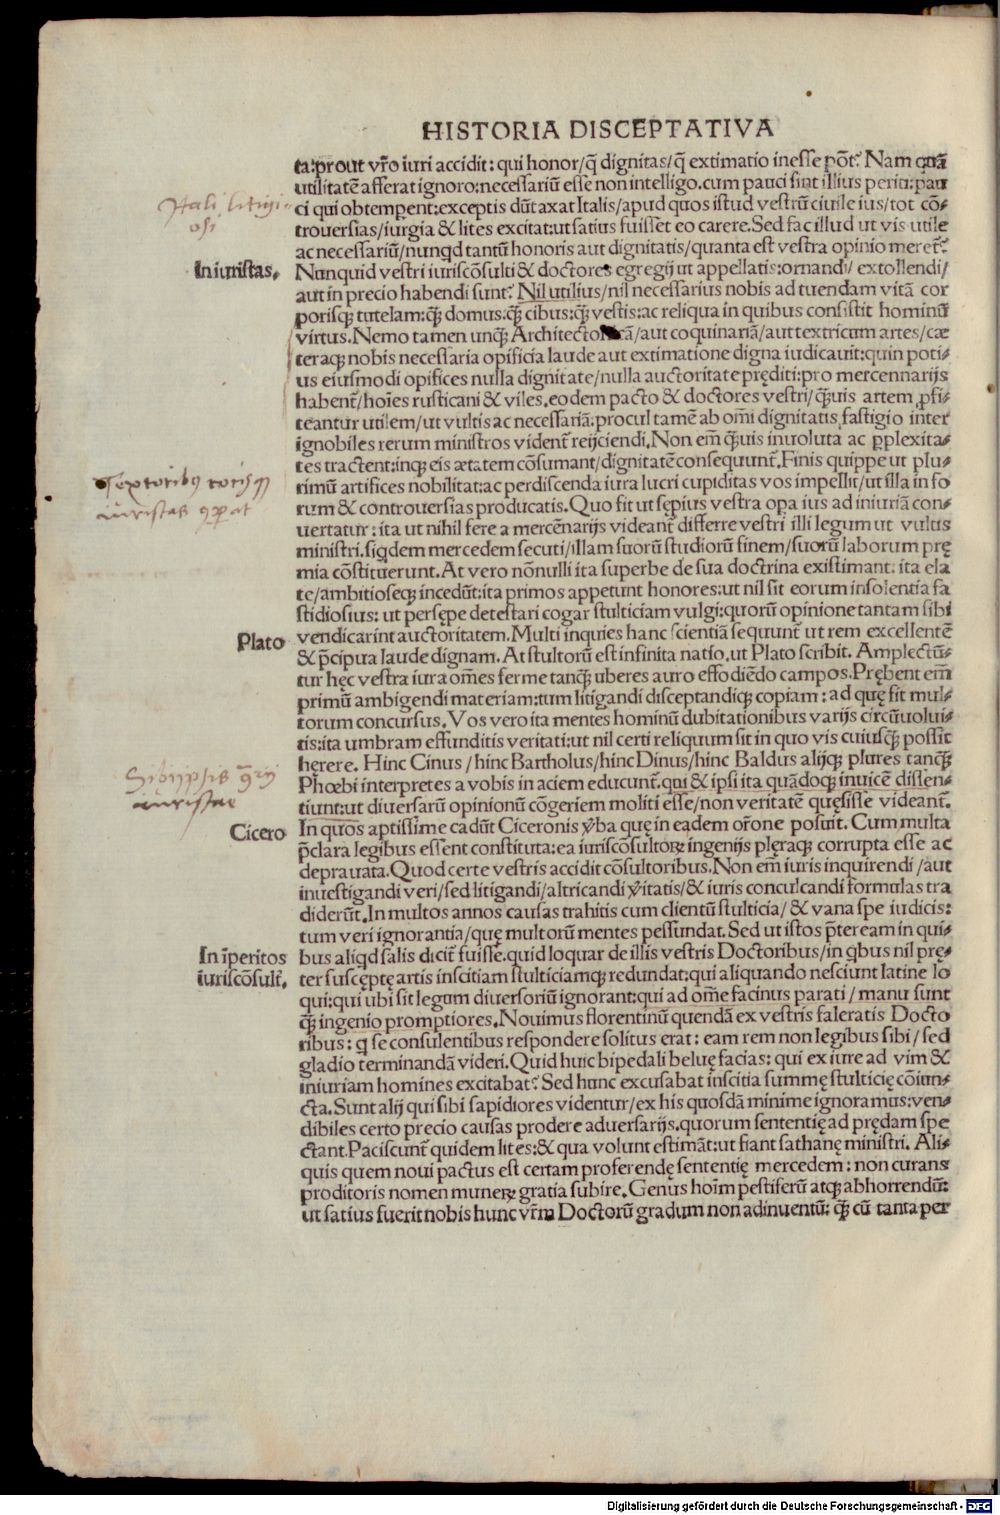 HISTORIA DISCEPTATIVA
ta:prout vr̃o iuri accidit: qui honor/q̃ dignitas/q̃ extimatio inesse põt? Nam quã
utilitatẽ afferat ignoro:necessariũ esse non intelligo.cum pauci sint illius periti:pau
Itali litigi-
osi
ci qui obtemꝑent:exceptis dũtaxat Italis/apud quos istud vestrũ ciuile ius/tot cõ-
trouersias/iurgia & lites excitat:ut satius fuisset eo carere.Sed fac illud ut vis utile
ac necessariũ/nunqd tantũ honoris aut dignitatis/quanta est vestra opinio meret̃?
In iuristas.
Nunquid vestri iuriscõsulti & doctores egregij ut appellatis:ornandi/ extollendi/
aut in precio habendi sunt? Nil utilius/nil necessarius nobis ad tuendam vitã cor
porisqꝫ tutelam:qꝫ̃ domus:qꝫ̃ cibus:qꝫ̃ vestis:ac reliqua in quibus consistit hominũ
virtus.Nemo tamen unqꝫ̃ Architecto cã/aut coquinariã/aut textricum artes/cæ
teraqꝫ nobis necessaria opificia laude aut extimatione digna iudicauit:quin poti-
us eiusmodi opifices nulla dignitate/nulla auctoritate pręditi:pro mercennarijs
habent̃/hoĩes rusticani & viles.eodem pacto & doctores vestri/qꝫ̃uis artem ꝓfi-
teantur utilem/ut vultis ac necessariã:procul tamẽ ab om̃i dignitatis fastigio inter
ignobiles rerum ministros vident̃ reijciendi.Non em̃ qꝫ̃uis inuoluta ac ꝑplexita-
tes tractent:inqꝫ eis ætatem cõsumant/dignitatẽ consequunt̃.Finis quippe ut plu-
Textoribus cocisqꝫ
iuristas ꝯparat
rimũ artifices nobilitat:ac perdiscenda iura lucri cupiditas vos impellit/ut illa in fo
rum & controuersias producatis.Quo fit ut sępius vestra opa ius ad iniuriã con-
uertatur: ita ut nihil fere a mercẽnarijs videant̃ differre vestri illi legum ut vultis
ministri.siqdem mercedem secuti/illam suorũ studiorũ finem/suorũ laborum prę
mia cõstituerunt.At vero nõnulli ita superbe de sua doctrina existimant: ita ela
te/ambitioseqꝫ incedũt:ita primos appetunt honores:ut nil sit eorum insolentia fa
stidiosius: ut persępe detestari cogar stulticiam vulgi:quorũ opinione tantam sibi
Plato
vendicarint auctoritatem.Multi inquies hanc scientiã sequunt̃ ut rem excellentẽ
& p̃cipua laude dignam. At stultorũ est infinita natio,ut Plato scribit. Amplectũ-
tur hęc vestra iura om̃es ferme tanqꝫ̃ uberes auro effodiẽdo campos.Prębent em̃
primũ ambigendi materiam:tum litigandi disceptandiqꝫ copiam: ad quę fit mul-
torum concursus. Vos vero ita mentes hominũ dubitationibus varijs circũuolui-
tis:ita umbram effunditis veritati:ut nil certi reliquum sit in quo vis cuiusqꝫ̃ possit
hęrere. Hinc Cinus /hinc Bartholus/hinc Dinus/hinc Baldus alijqꝫ plures tanqꝫ̃
Sibiipsis ꝯ̃rij
iuristae
Phœbi interpretes a vobis in aciem educunt̃.qui & ipsi ita quãdoqꝫ inuicẽ dissen-
tiunt:ut diuersarũ opinionũ cõgeriem moliti esse/non veritatẽ quęsisse videant̃.
Cicero
In quos aptissime cadũt Ciceronis ṽba quę in eadem or̃one posuit. Cum multa
p̃clara legibus essent constituta:ea iuriscõsultoꝝ ingenijs plęraqꝫ corrupta esse ac
deprauata.Quod certe vestris accidit cõsultoribus. Non em̃ iuris inquirendi /aut
inuestigandi veri/sed litigandi/altricandi ṽitatis/& iuris conculcandi formulas tra
diderũt.In multos annos causas trahitis cum clientũ stulticia/ & vana spe iudicis:
tum veri ignorantia/quę multorũ mentes pessundat. Sed ut istos p̃teream in qui-
In ĩperitos
iuriscõsult̃.
bus aliqd salis dicit̃ fuisse.quid loquar de illis vestris Doctoribus/in qbus nil prę-
ter susceptę artis inscitiam stulticiamqꝫ redundat:qui aliquando nesciunt latine lo
qui:qui ubi sit legum diuersoriũ ignorant:qui ad om̃e facinus parati / manu sunt
qꝫ̃ ingenio promptiores.Nouimus florentinũ quendã ex vestris faleratis Docto
ribus: q se consulentibus respondere solitus erat: eam rem non legibus sibi / sed
gladio terminandã videri. Quid huic bipedali beluę facias: qui ex iure ad vim &
iniuriam homines excitabat? Sed hunc excusabat inscitia summę stulticię cõiun-
cta. Sunt alij qui sibi sapidiores videntur/ex his quosdã minime ignoramus:ven-
dibiles certo precio causas prodere aduersarijs.quorum sententię ad prędam spe
ctant.Paciscunt̃ quidem lites:& qua volunt estimãt:ut fiant sathanę ministri. Ali-
quis quem noui pactus est certam proferendę sententię mercedem: non curans
proditoris nomen muneꝝ gratia subire.Genus hoĩm pestiferũ atqꝫ abhorrendũ:
ut satius fuerit nobis hunc vr̃m Doctorũ gradum non adinuentũ: qꝫ̃ cũ tanta per
Digitalisierung gefördert durch die Deutsche Forschungsgemeinschaft - DFG